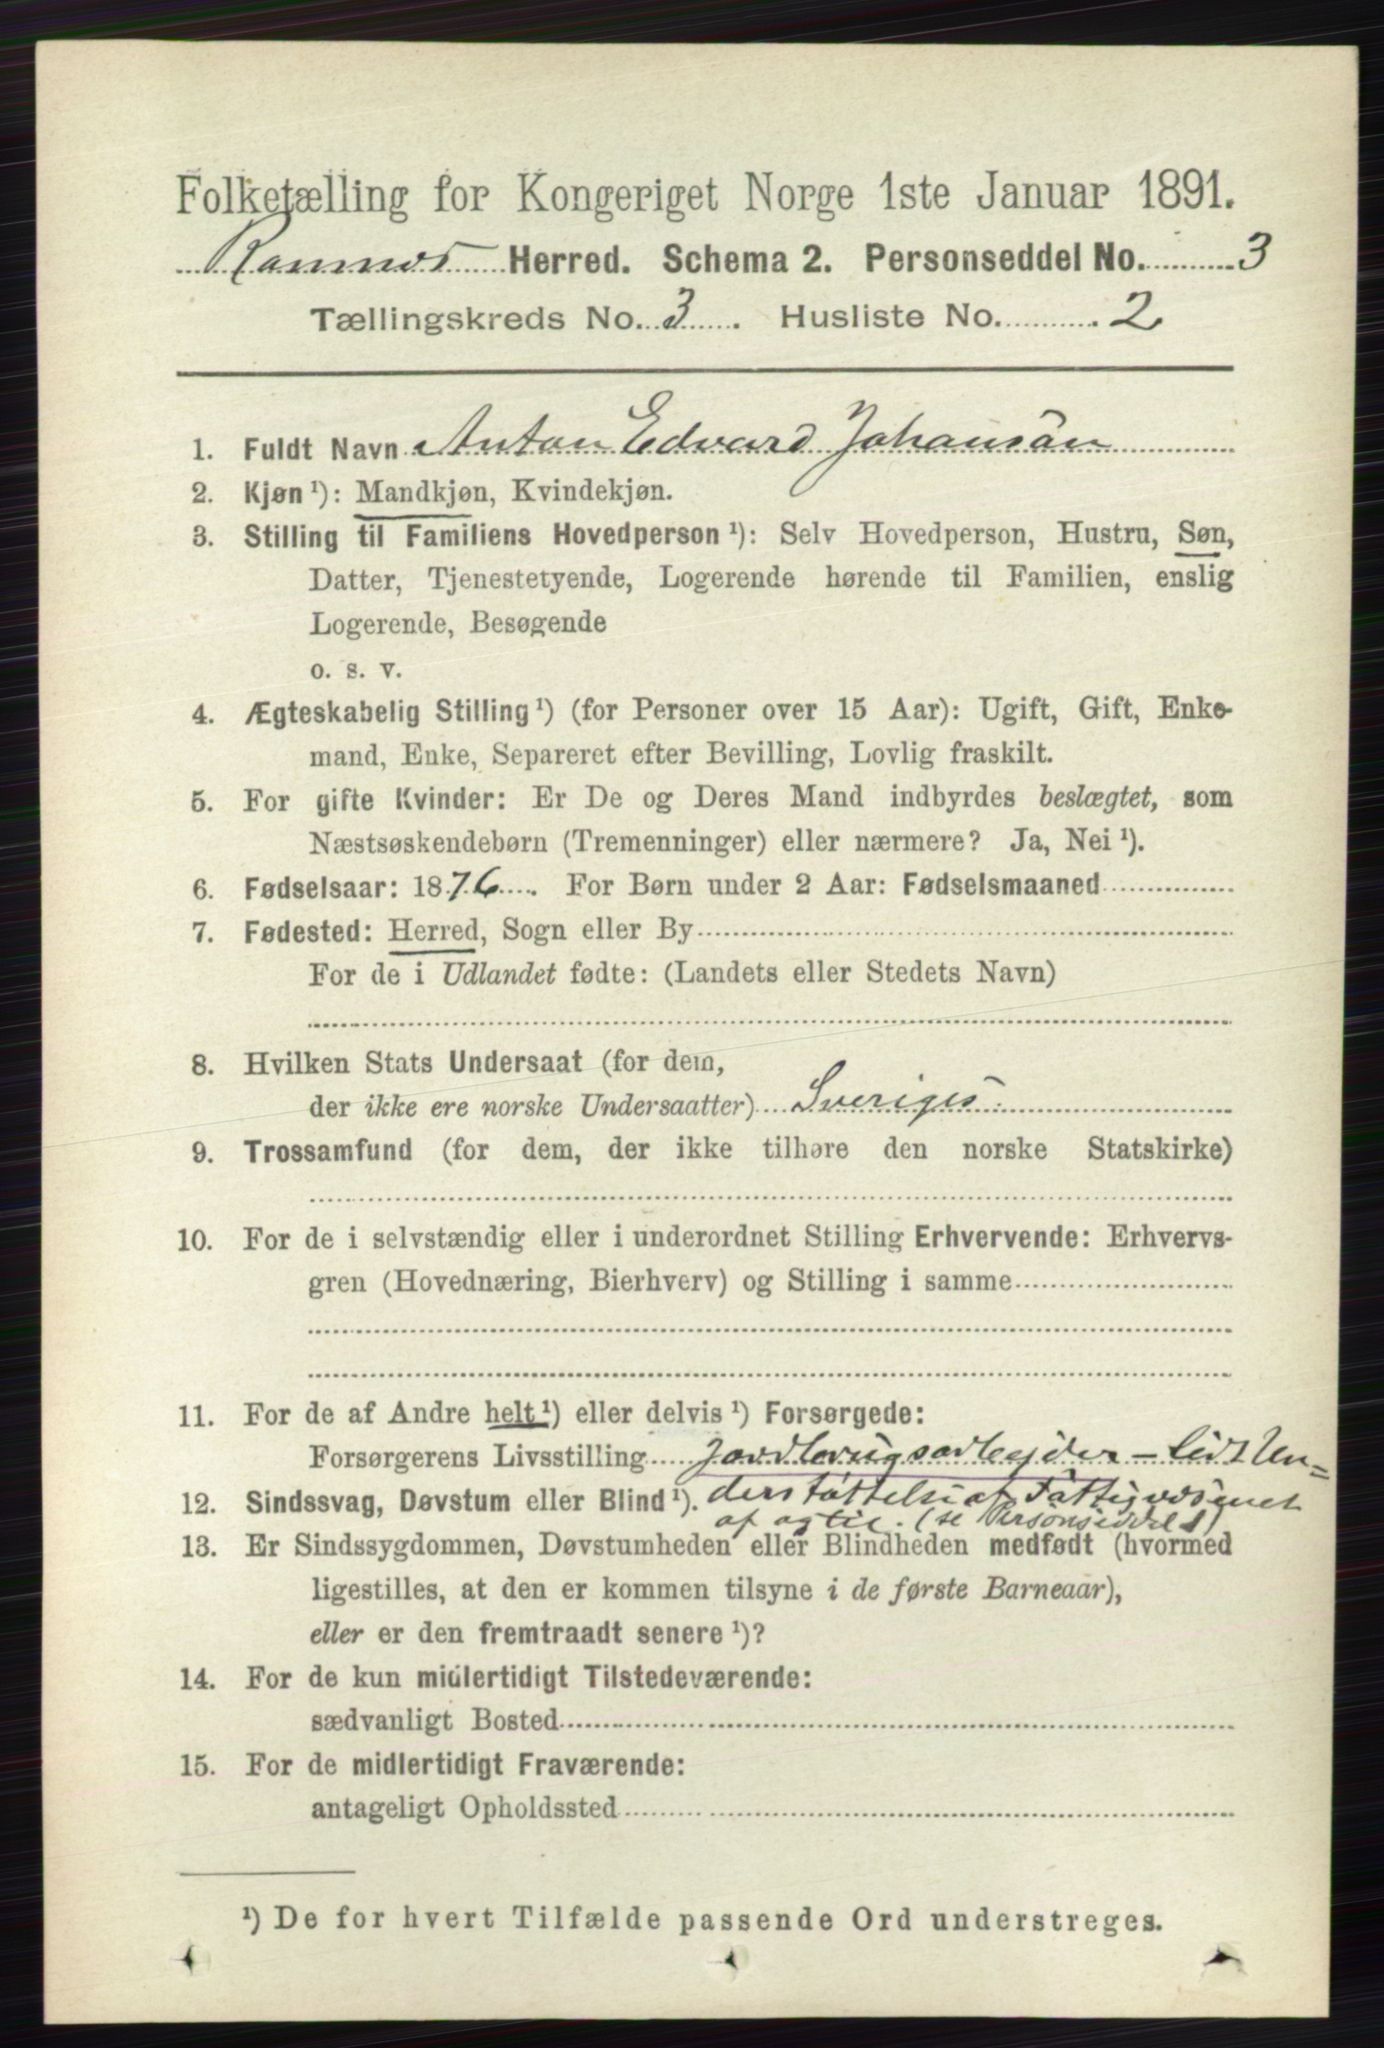 Folketælling for Kongeriget Norge 1ste Januar 1891.
Ramnes Herred. Schema 2. Personseddel No. 3
Tællingskreds No. 3. Husliste No. 2
1. Fuldt Navn Anton Edvard Johansen
2. Kjøn ¹): Mandkjøn, Kvindekjøn.
3. Stilling til Familiens Hovedperson ¹): Selv Hovedperson, Hustru, Søn,
Datter, Tjenestetyende, Logerende hørende til Familien, enslig
Logerende, Besøgende
o. s. v.
4. Ægteskabelig Stilling ¹) (for Personer over 15 Aar): Ugift, Gift, Enke-
mand, Enke, Separeret efter Bevilling, Lovlig fraskilt.
5. For gifte Kvinder: Er De og Deres Mand indbyrdes beslægtet, som
Næstsøskendebørn (Tremenninger) eller nærmere? Ja, Nei ¹).
6. Fødselsaar: 1876. For Børn under 2 Aar: Fødselsmaaned
7. Fødested: Herred, Sogn eller By
For de i Udlandet fødte: (Landets eller Stedets Navn)
8. Hvilken Stats Undersaat (for dem,
der ikke ere norske Undersaatter) Sveriges
9. Trossamfund (for dem, der ikke tilhøre den norske Statskirke)
10. For de i selvstændig eller i underordnet Stilling Erhvervende: Erhvervs-
gren (Hovednæring, Bierhverv) og Stilling i samme
11. For de af Andre helt ¹) eller delvis ¹) Forsørgede:
Forsørgerens Livsstilling Jordbrugsarbejder - lidt Un=
12. Sindssvag, Døvstum eller Blind ¹). derstøttelse af Fattigvæsenet
af og til. (se Personseddel 1)
13. Er Sindssygdommen, Døvstumheden eller Blindheden medfødt (hvormed
ligestilles, at den er kommen tilsyne i de første Barneaar),
eller er den fremtraadt senere ¹)?
14. For de kun midlertidigt Tilstedeværende:
sædvanligt Bosted
15. For de midlertidigt Fraværende:
antageligt Opholdssted
¹) De for hvert Tilfælde passende Ord understreges.